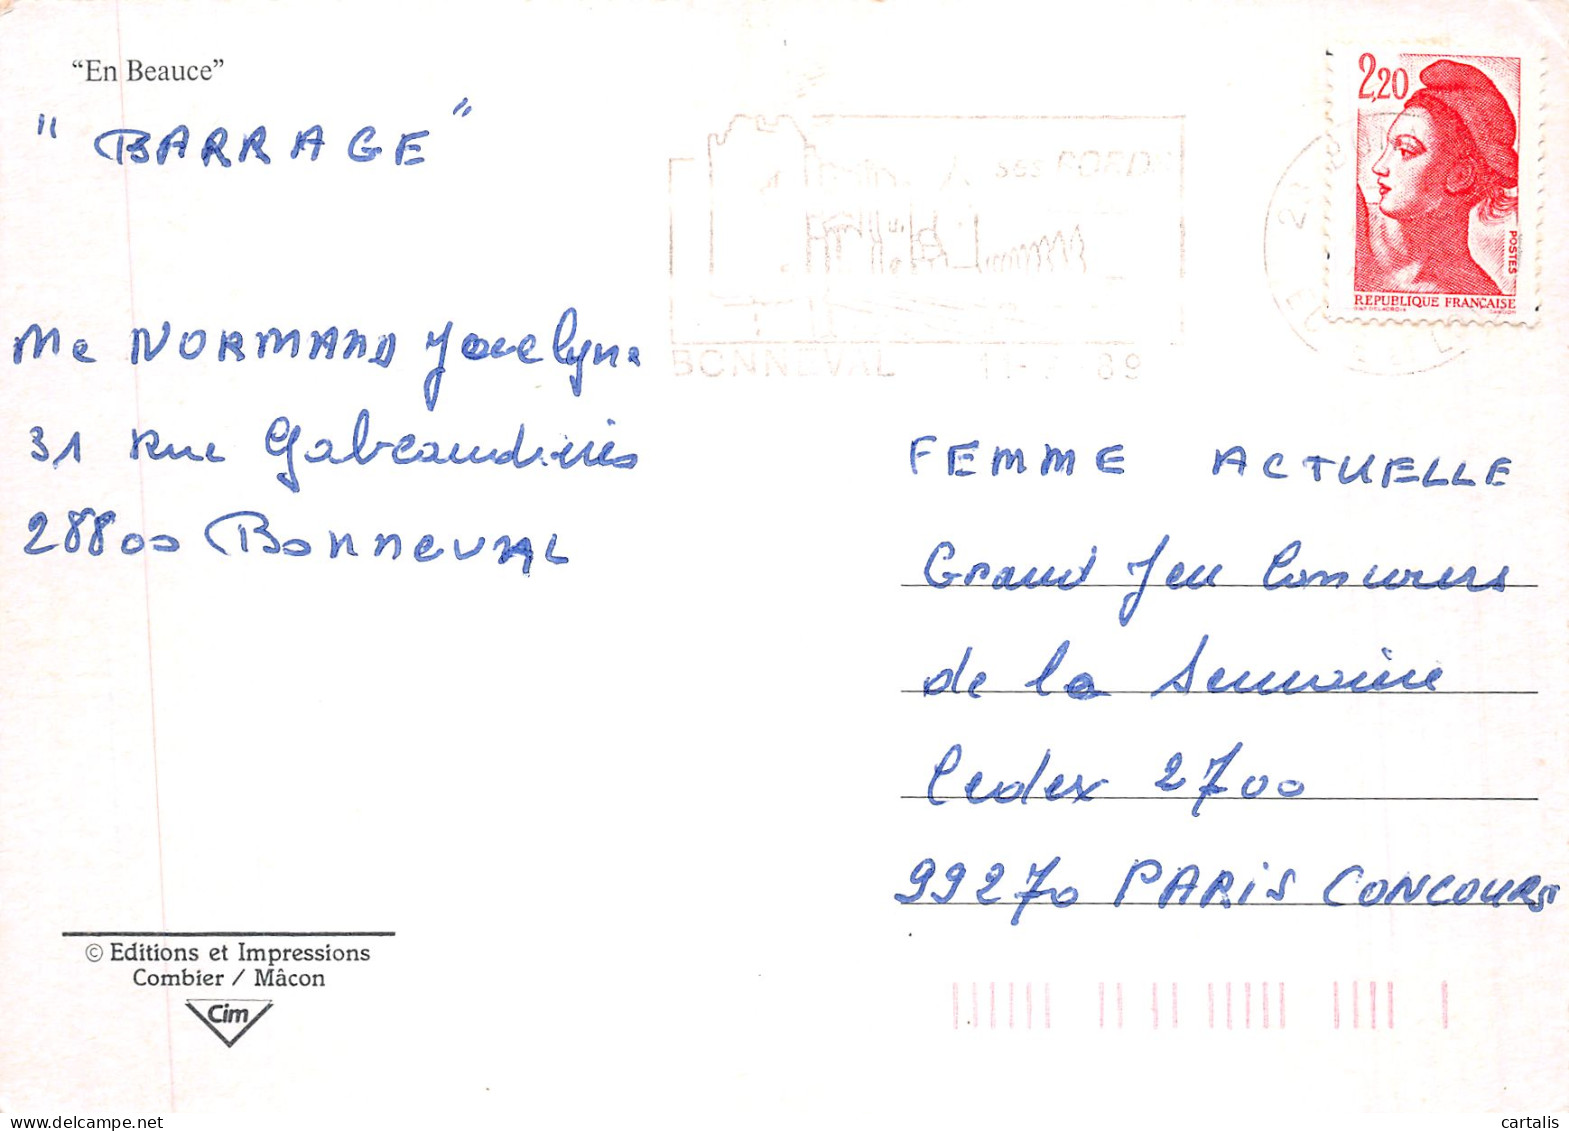 “En Beauce”
" BARRAGE "
2,20
POSTES
REPUBLIQUE FRANÇAISE
ses
BONNEVAL 89
Me NORMAND Jocelyne
31 Rue
28800 BONNEVAL
FEMME ACTUELLE
Grand Jeu Concours
de la Semaine
Cedex 2700
99270 PARIS CONCOURS
© Editions et Impressions
Combier / Mâcon
Cim
cartalis